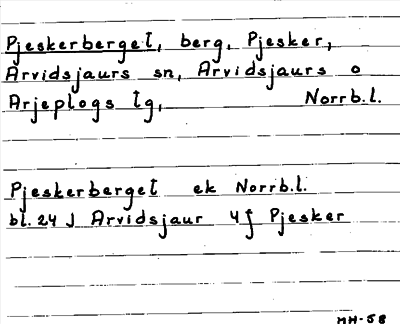 Pjeskerberget, berg, Pjesker,
Arvidsjaurs sn, Arvidsjaurs o
Arjeplogs tg, Norrb.l.
Pjeskerberget ek Norrb.l.
bl. 24 J Arvidsjaur 4 j Pjesker
MH-58